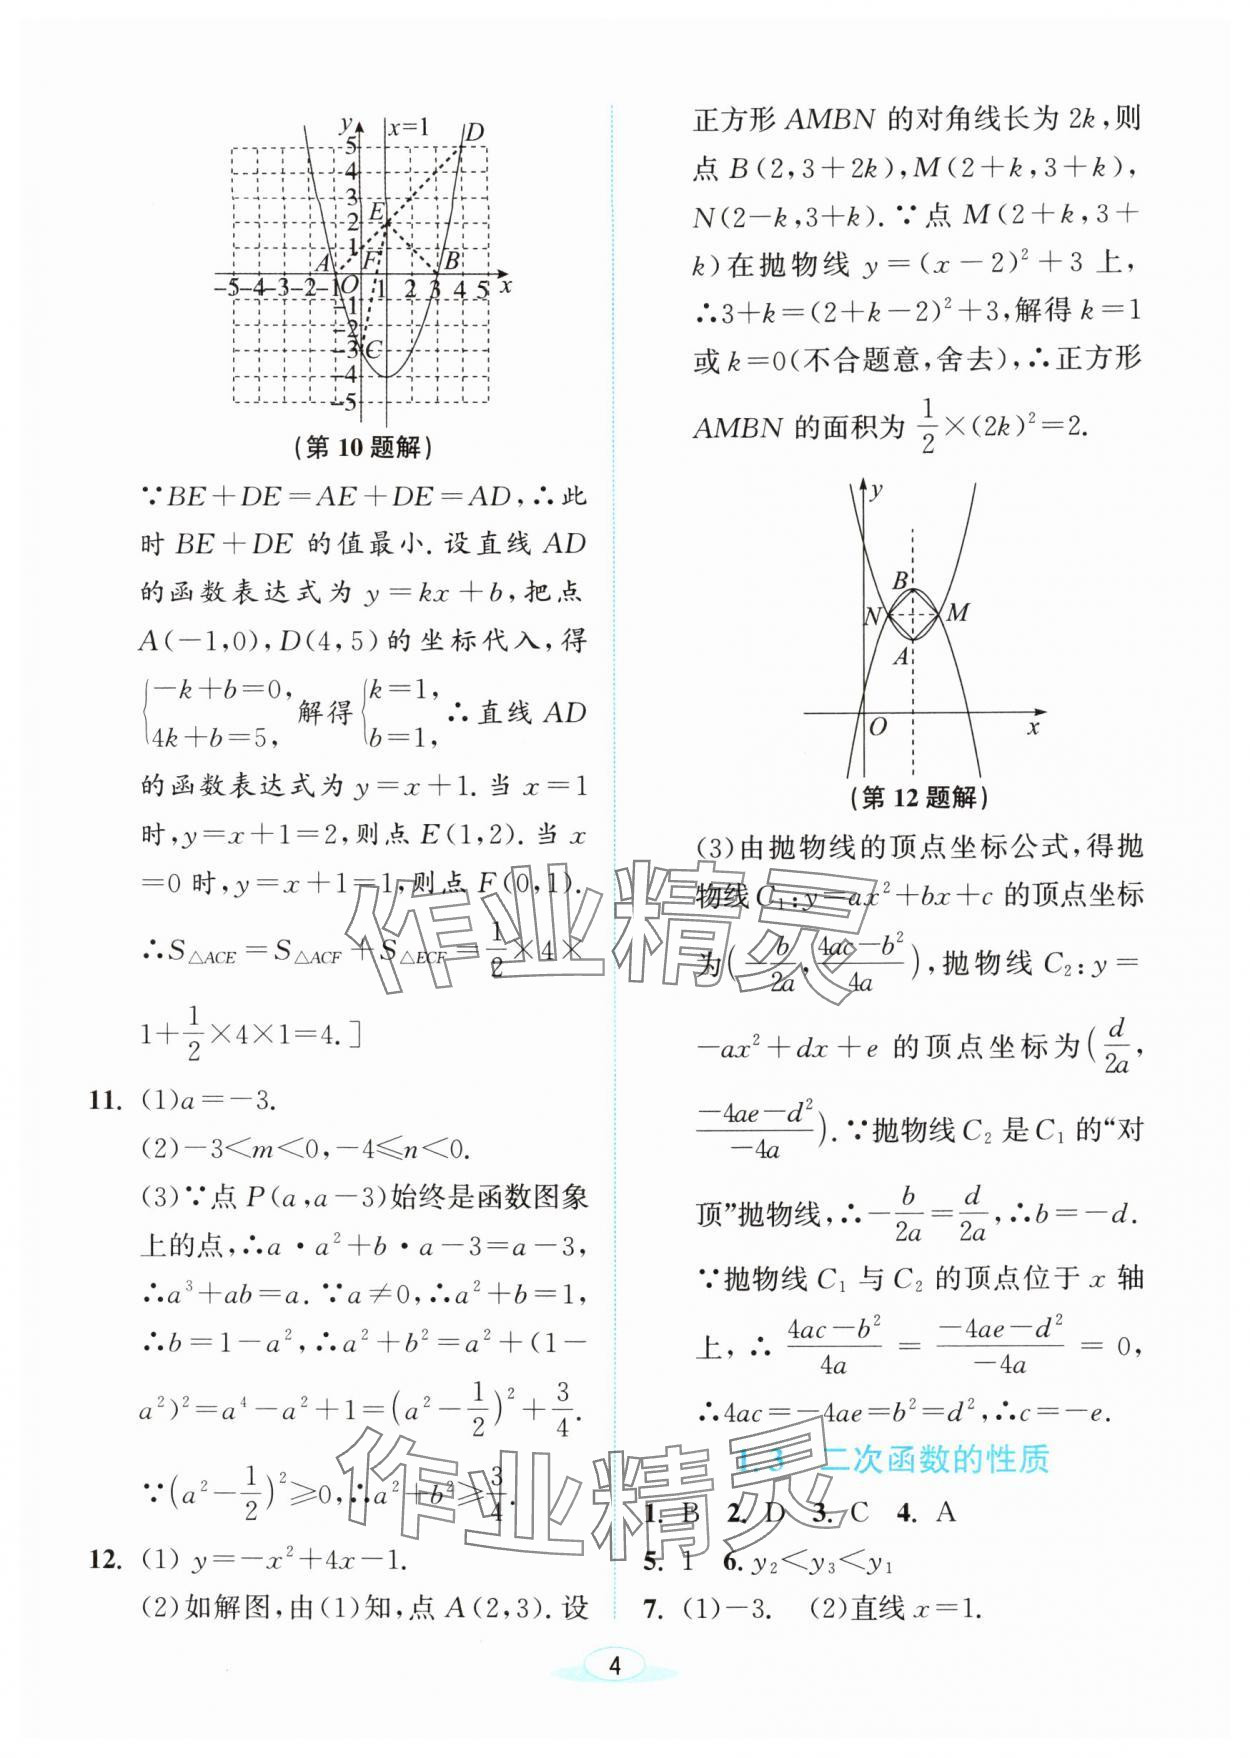 y x=1 D
5
4
3
E 2
A 1 F B
-5-4-3-2-1 O 1 2 3 4 5 x
-1
-2
-3 C
-4
-5
(第10题解)
∵BE+DE=AE+DE=AD,∴此
时BE+DE的值最小.设直线AD
的函数表达式为y=kx+b,把点
A(-1,0),D(4,5)的坐标代入,得
{-k+b=0, 4k+b=5, 解得{k=1, b=1, ∴直线AD
的函数表达式为y=x+1.当x=1
时,y=x+1=2,则点E(1,2).当x
=0时,y=x+1=1,则点F(0,1).
∴S△ACE=S△ACF+S△ECF=1/2×4×
1+1/2×4×1=4.]
11. (1)a=-3.
(2)-3<m<0,-4≤n<0.
(3)∵点P(a,a-3)始终是函数图象
上的点,∴a·a²+b·a-3=a-3,
∴a³+ab=a.∵a≠0,∴a²+b=1,
∴b=1-a²,∴a²+b²=a²+(1-
a²)²=a⁴-a²+1=(a²-1/2)²+3/4.
∵(a²-1/2)²≥0,∴a²+b²≥3/4.
12. (1) y=-x²+4x-1.
(2)如解图,由(1)知,点A(2,3).设
正方形AMBN的对角线长为2k,则
点B(2,3+2k),M(2+k,3+k),
N(2-k,3+k).∵点M(2+k,3+
k)在抛物线y=(x-2)²+3上,
∴3+k=(2+k-2)²+3,解得k=1
或k=0(不合题意,舍去),∴正方形
AMBN的面积为1/2×(2k)²=2.
y
B
N M
A
O x
(第12题解)
(3)由抛物线的顶点坐标公式,得抛
物线C₁:y=ax²+bx+c的顶点坐标
为(-b/2a,(4ac-b²)/4a),抛物线C₂:y=
-ax²+dx+e的顶点坐标为(d/2a,
(-4ae-d²)/-4a).∵抛物线C₂是C₁的“对
顶”抛物线,∴-b/2a=d/2a,∴b=-d.
∵抛物线C₁与C₂的顶点位于x轴
上,∴(4ac-b²)/4a=(-4ae-d²)/-4a=0,
∴4ac=-4ae=b²=d²,∴c=-e.
1.3 二次函数的性质
1. B 2. D 3. C 4. A
5. 1 6. y₂<y₃<y₁
7. (1)-3. (2)直线x=1.
4
作业精灵
作业精灵